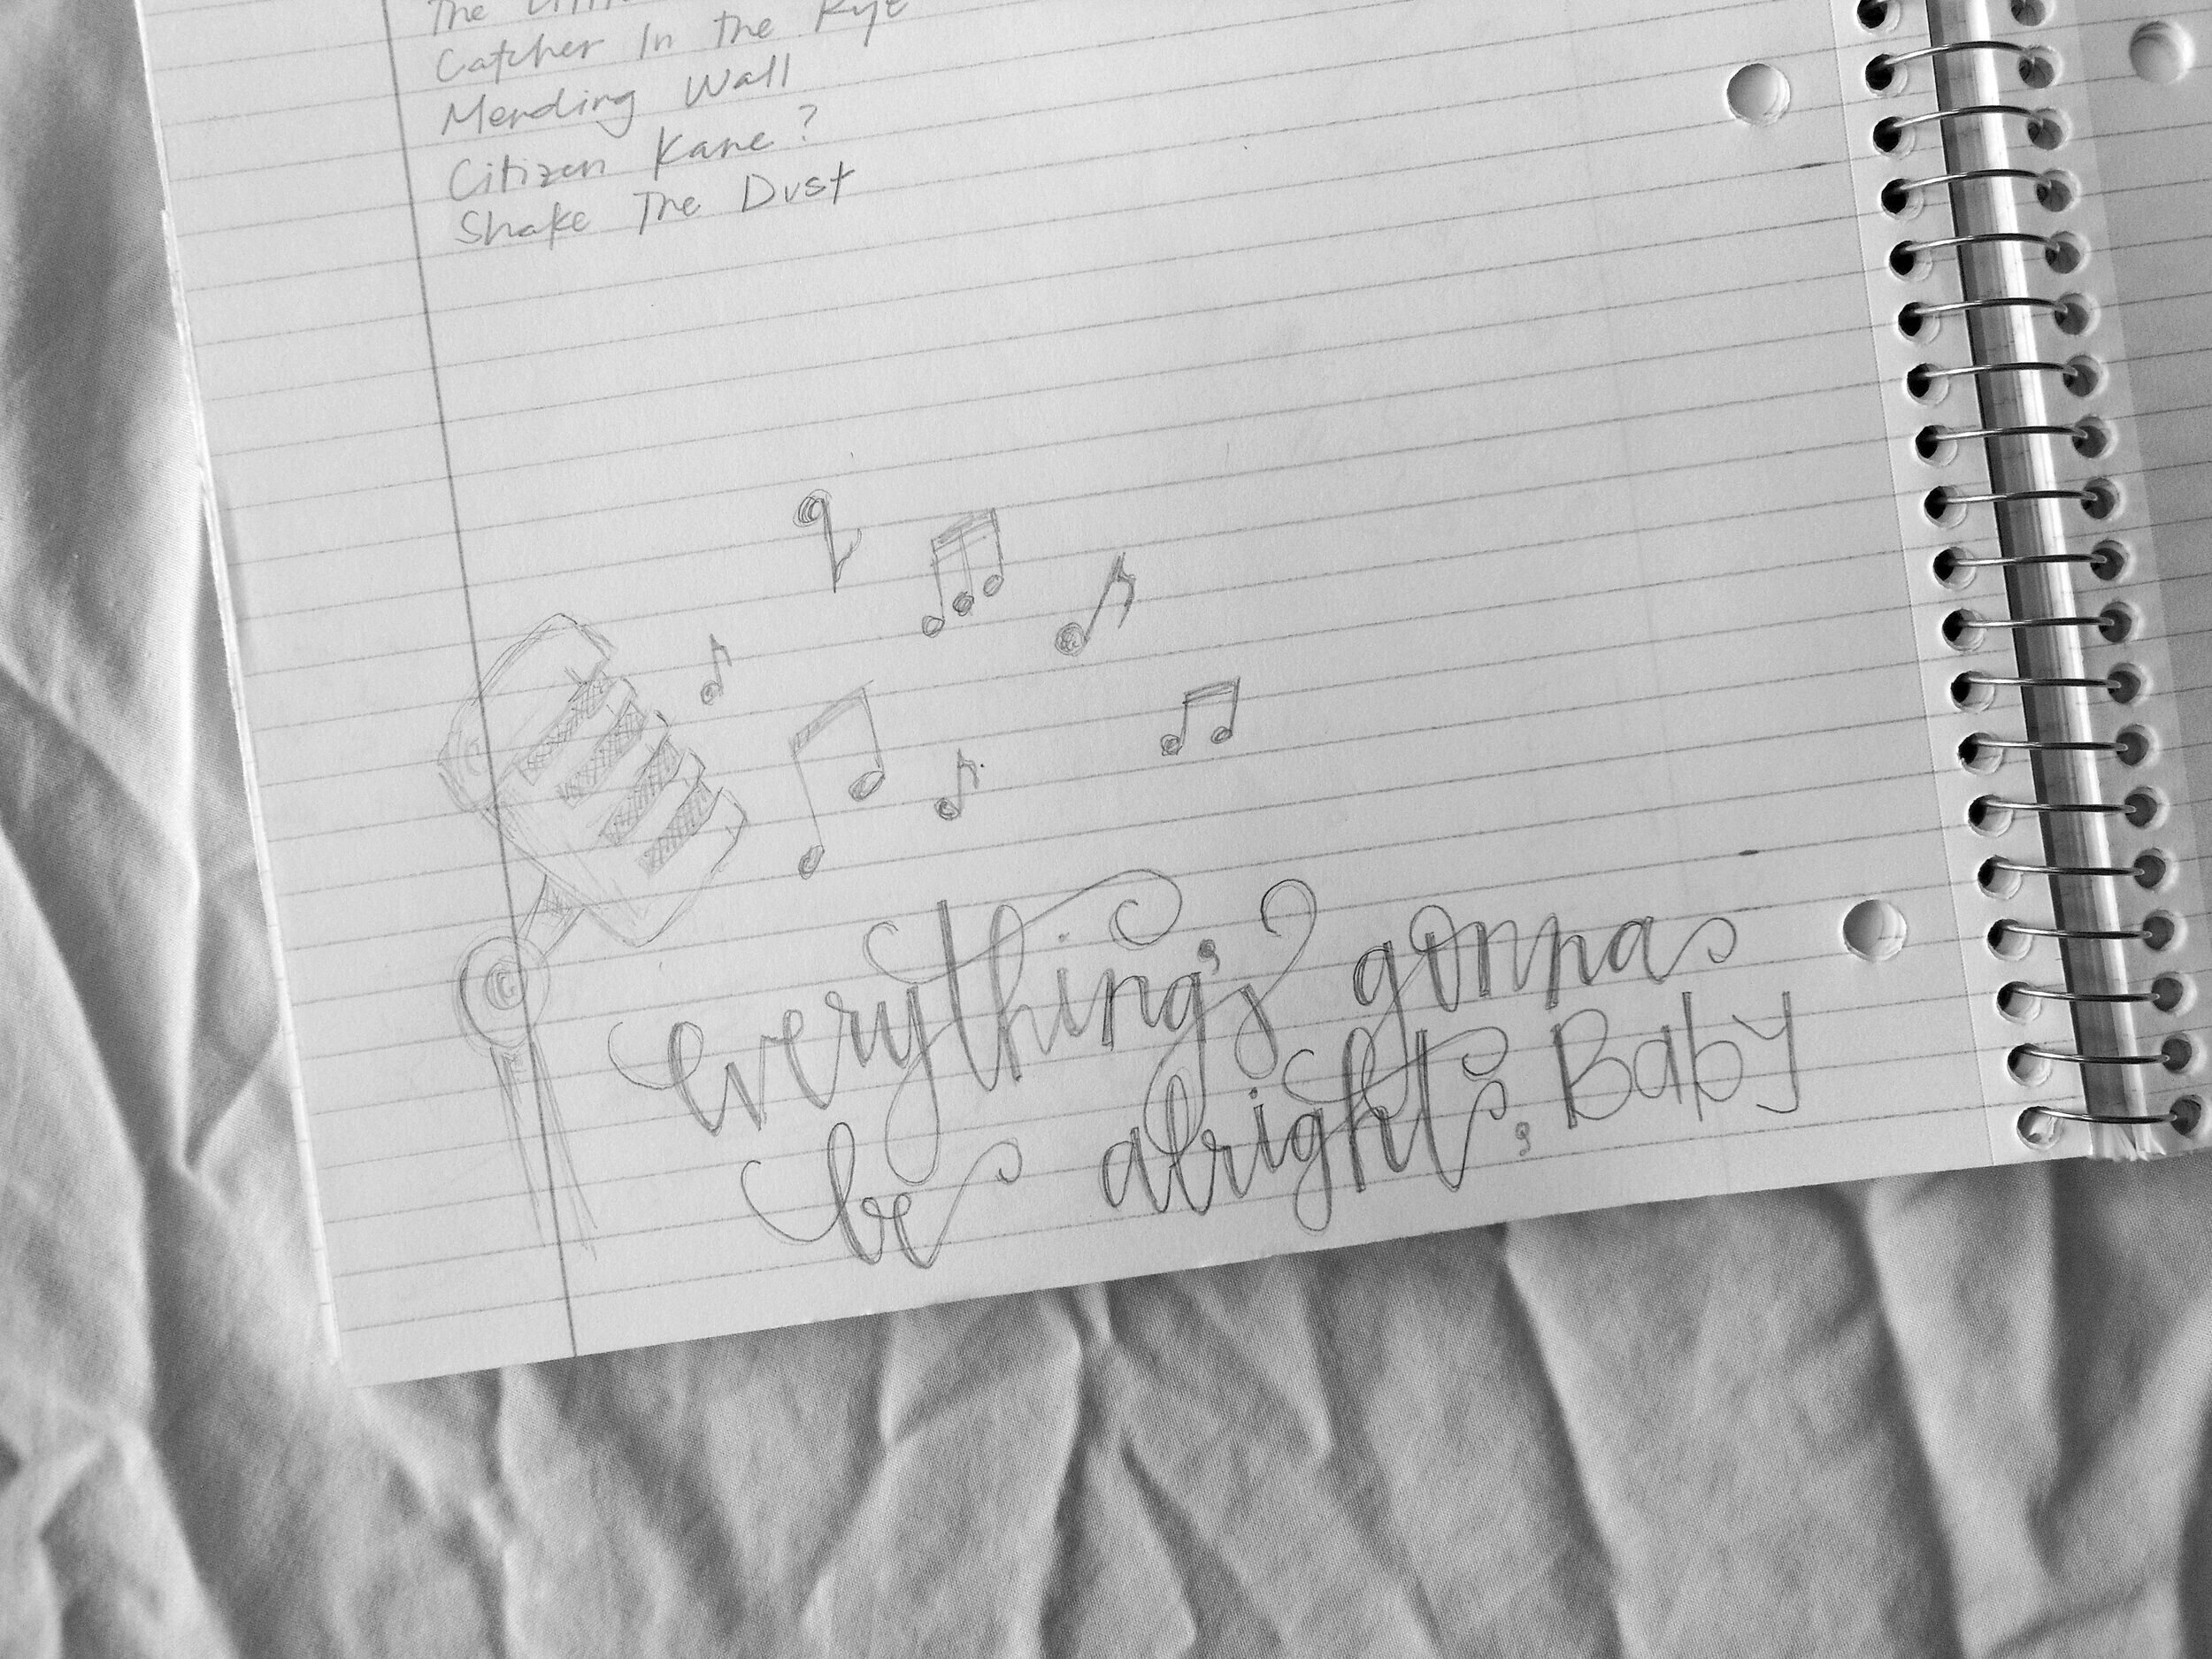 The
Catcher In the Rye
Mending Wall
Citizen Kane?
Shake The Dust
everything's gonna
be alright, Baby